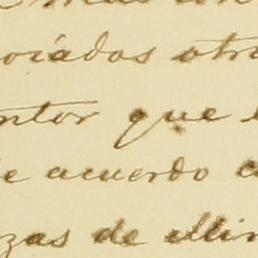 ociados otr
ntor que
e acuerdo c
zas de Min